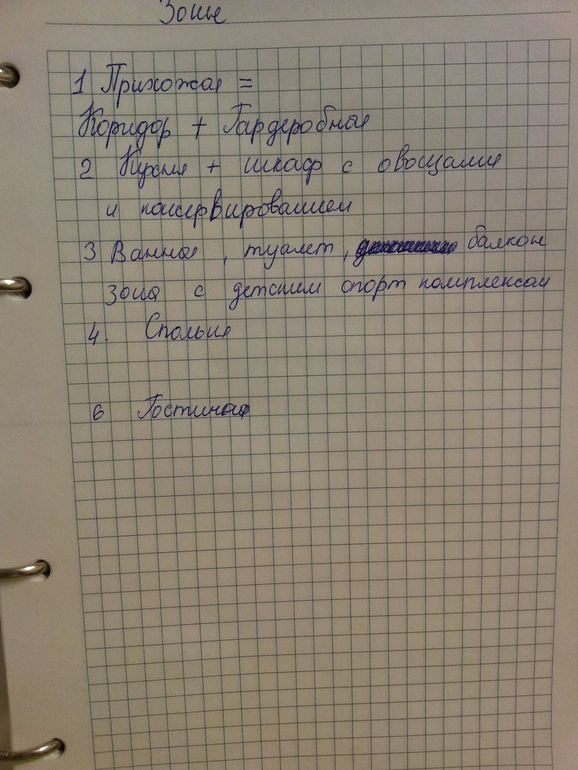 Зоны
1 Прихожая =
Коридор + Гардеробная
2 Кухня + шкаф с овощами
и консервированием
3 Ванная, туалет, балкон
зона с детским спорт комплексом
4. Спальня
6 Гостиная